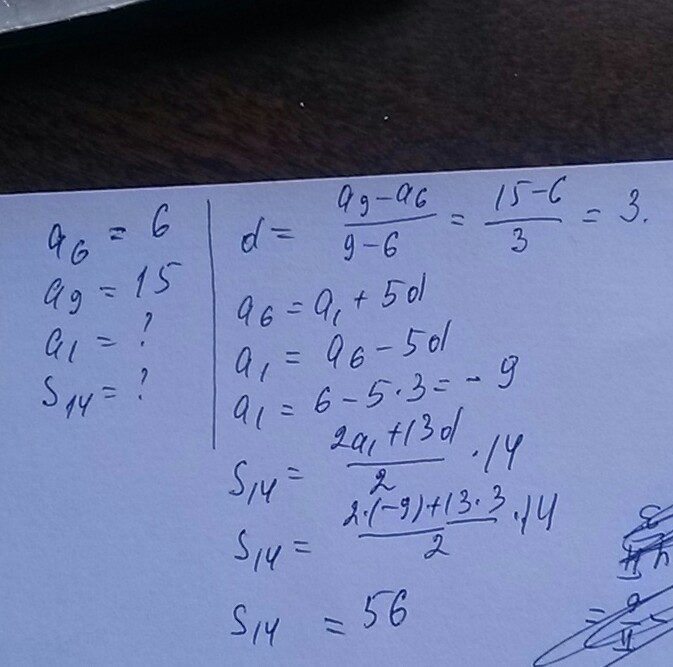 a₆ = 6
a₉ = 15
a₁ = ?
S₁₄ = ?
d = (a₉ - a₆)/(9 - 6) = (15 - 6)/3 = 3.
a₆ = a₁ + 5d
a₁ = a₆ - 5d
a₁ = 6 - 5 · 3 = - 9
S₁₄ = (2a₁ + 13d)/2 · 14
S₁₄ = (2 · (-9) + 13 · 3)/2 · 14
S₁₄ = 56